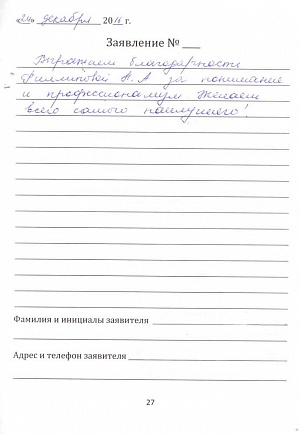 «24» декабря 2016 г.
Заявление № ___
Выражаем благодарность
Филипповой Н. А за понимание
и профессионализм Желаем
всего самого наилучшего!
Фамилия и инициалы заявителя
Адрес и телефон заявителя
27